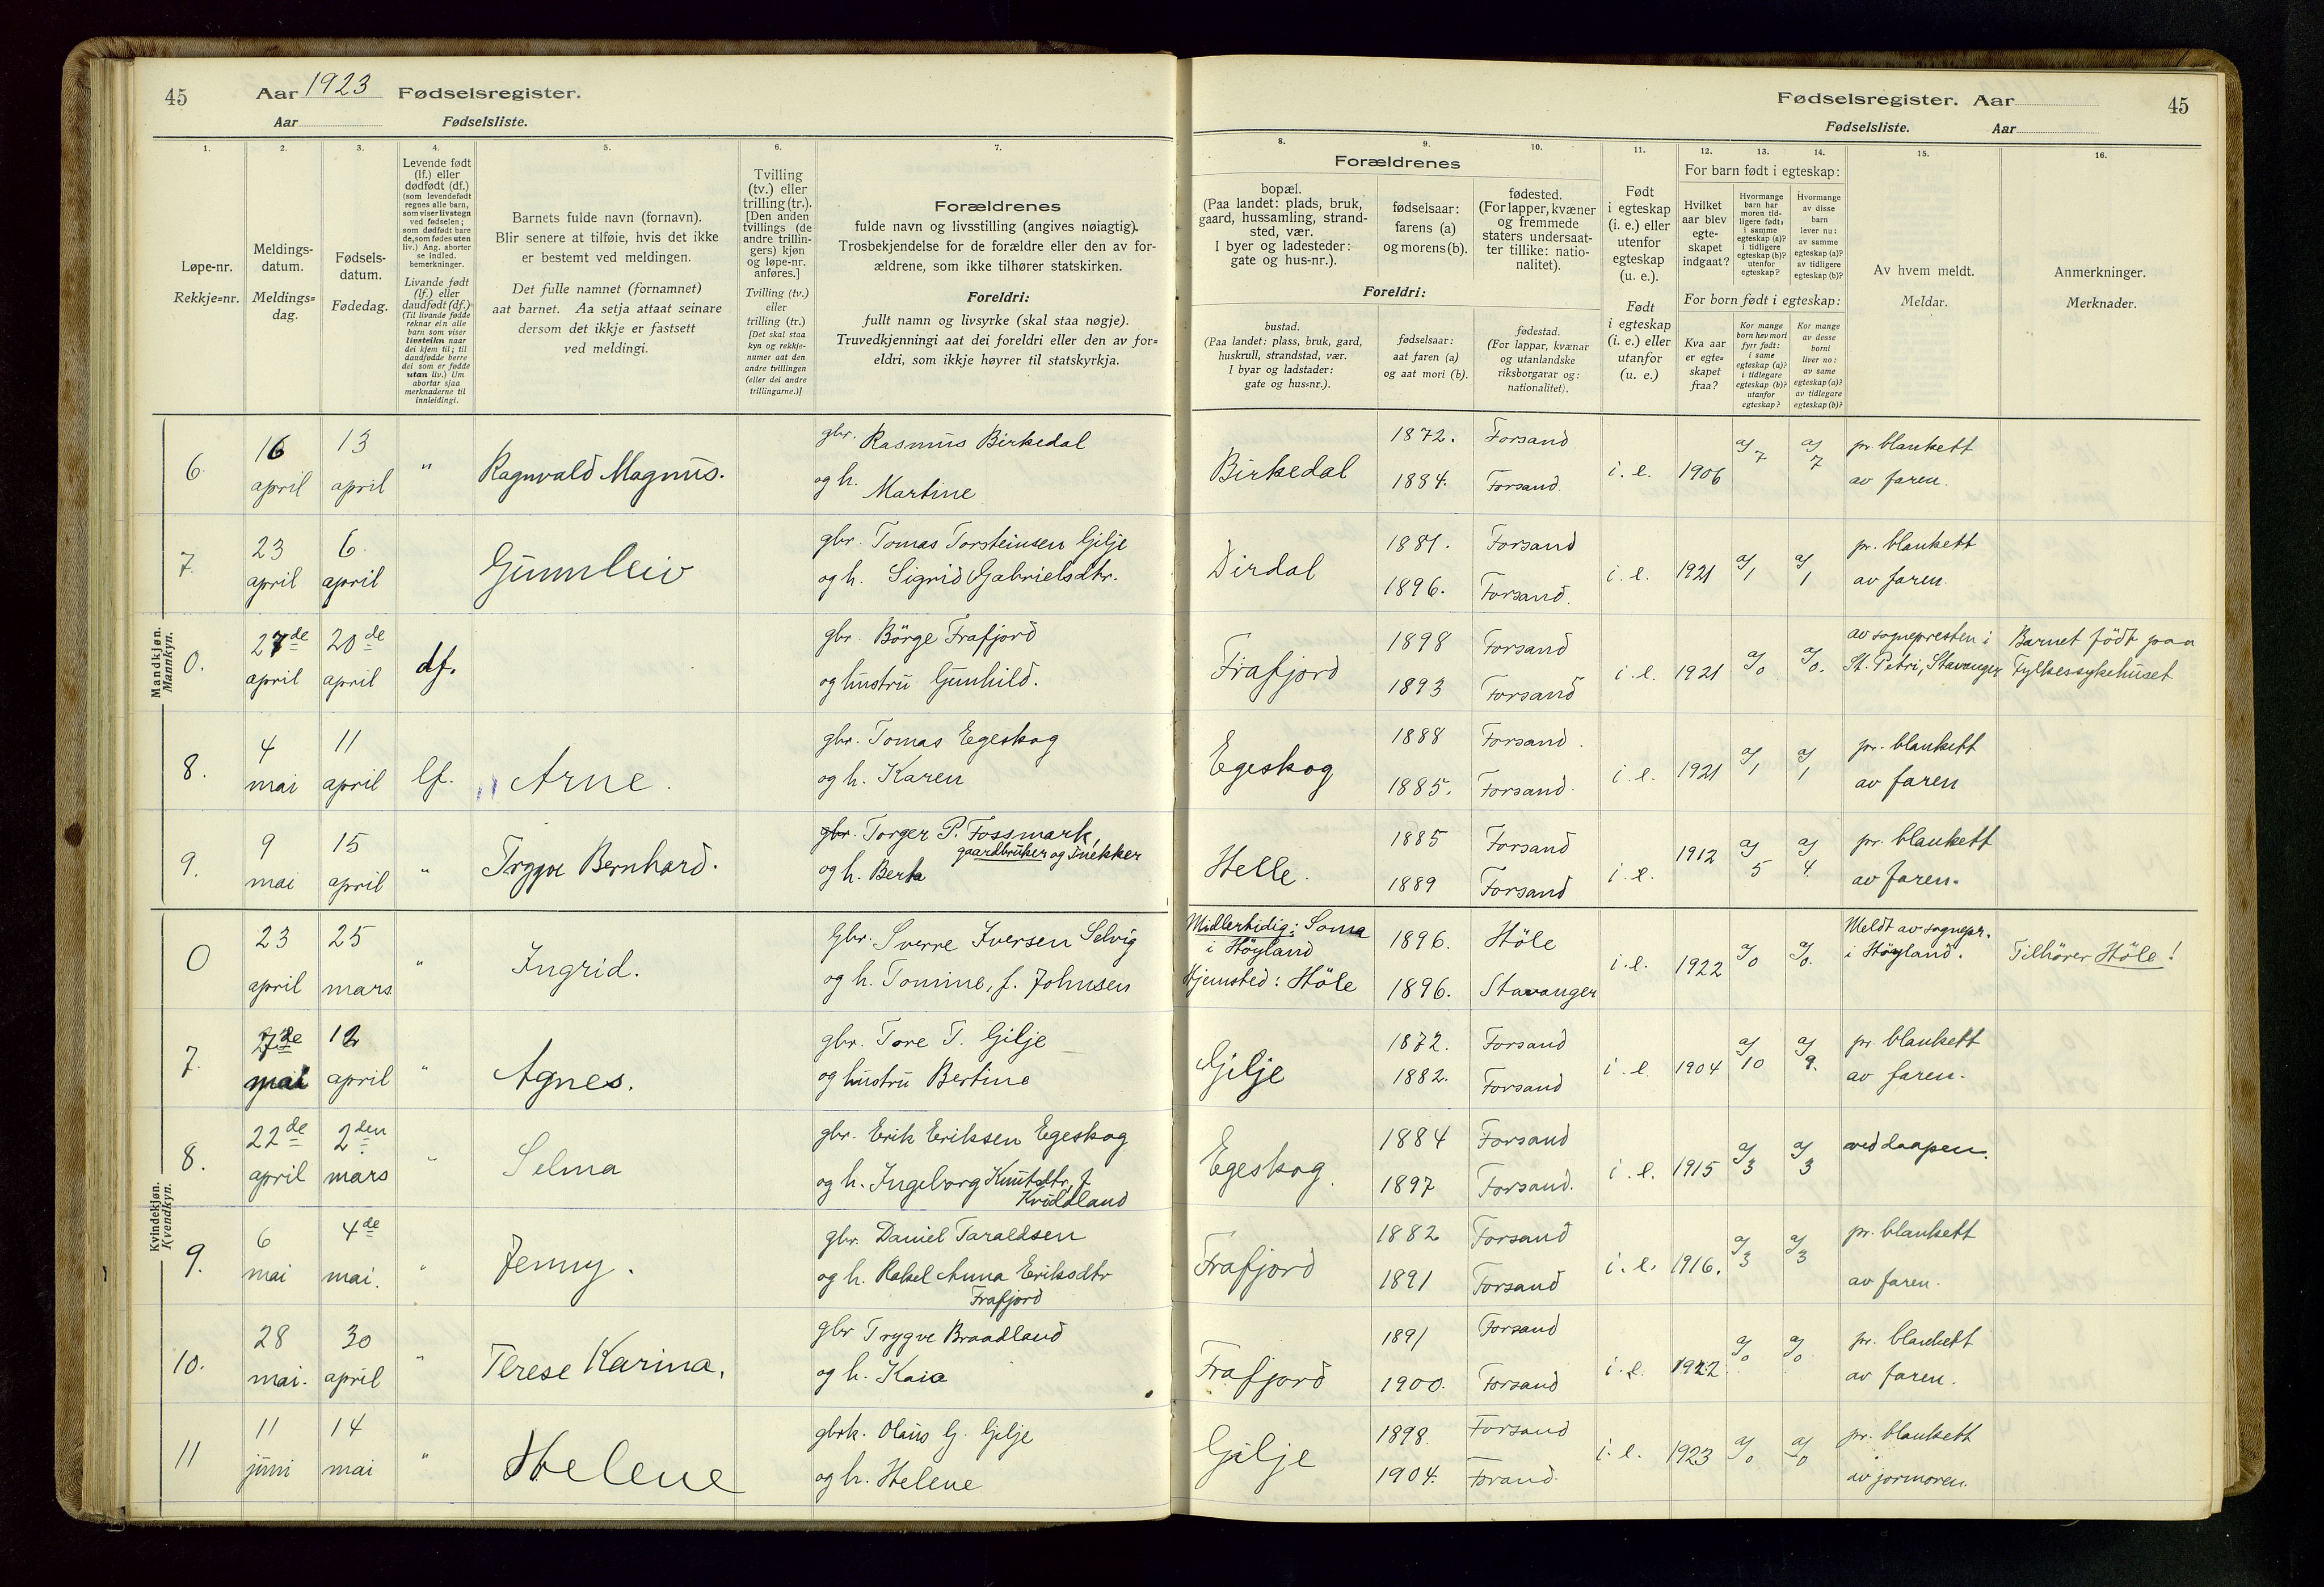 45 Aar 1923 Fødselsregister.
Aar Fødselsliste.
Fødselsregister. Aar 45
Fødselsliste. Aar
1. 2. 3. 4. 5. 6. 7. 8. 9. 10. 11. 12. 13. 14. 15. 16.
Løpe-nr.
Rekkje=nr.
Meldings-
datum.
Meldings=
dag.
Fødsels-
datum.
Fødedag.
Levende født
(lf.) eller
dødfødt (df.)
(som levendefødt
regnes alle barn,
som viser livstegn
ved fødselen;
som dødfødt bare
de, som fødes uten
liv.) Ang. aborter
se indled.
bemerkninger.
Livande født
(lf.) eller
daudfødt (df.)
(Til livande fødde
reknar ein alle
barn som viser
livsteikn naar
dei kjem til; til
daudfødde berre
dei som er fødde
utan liv.) Um
abortar sjaa
merknaderne til
innleidingi.
Barnets fulde navn (fornavn).
Blir senere at tilføie, hvis det ikke
er bestemt ved meldingen.
Det fulle namnet (fornamnet)
aat barnet. Aa setja attaat seinare
dersom det ikkje er fastsett
ved meldingi.
Tvilling
(tv.) eller
trilling (tr.).
[Den anden
tvillings (de
andre trillin-
gers) kjøn
og løpe-nr.
anføres.]
Tvilling (tv.)
eller
trilling (tr.)
[Det skal staa
kyn og rekkje-
numer aat den
andre tvillingen
(eller dei andre
trillingarne.)]
Forældrenes
fulde navn og livsstilling (angives nøiagtig).
Trosbekjendelse for de forældre eller den av for-
ældrene, som ikke tilhører statskirken.
Foreldri:
fullt namn og livsyrke (skal staa nøgje).
Truvedkjenningi aat dei foreldri eller den av for=
eldri, som ikkje høyrer til statskyrkja.
Forældrenes
bopæl.
(Paa landet: plads, bruk,
gaard, hussamling, strand-
sted, vær.
I byer og ladesteder:
gate og hus-nr.).
fødselsaar:
farens (a)
og morens (b).
fødested.
(For lapper, kvæner
og fremmede
staters undersaat-
ter tillike: natio-
nalitet).
Foreldri:
bustad.
(Paa landet: plass, bruk, gard,
huskrull, strandstad, vær.
I byar og ladstader:
gate og hus=nr.).
fødselsaar:
aat faren (a)
og aat mori (b).
fødestad.
(For lappar, kvænar
og utanlandske
riksborgarar og:
nationalitet).
Født
i egteskap
(i. e.) eller
utenfor
egteskap
(u. e.).
Født
i egteskap
(i. e.) eller
utanfor
(u. e.)
For barn født i egteskap:
Hvilket
aar blev
egte-
skapet
indgaat?
Hvormange
barn har
moren tid-
ligere født:
i samme
egteskap (a)?
i tidligere
egteskap (b)?
utenfor
egteskap?
Hvormange
av disse
barn
lever nu:
av samme
egteskap (a)?
av tidligere
egteskap (b)?
For born født i egteskap:
Kva aar
er egte=
skapet
fraa?
Kor mange
born hev mori
fyrr født:
i same
egteskap (a)?
i tidlegare
egteskap (b)?
utanfor
egteskap?
Kor mange
av desse
borni
liver no:
av same
egteskap (a)?
av tidlegare
egteskap (b)?
Av hvem meldt.
Meldar.
Anmerkninger.
Merknader.
Mandkjøn.
Mannkyn.
6. 16 april 13 april " Ragnvald Magnus. gbr. Rasmus Birkedal og h. Martine Birkedal 1872. 1884. Forsand Forsand. i. e. 1906 a/7 a/7 pr. blankett av faren.
7. 23 april 6. april Gunnleiv gbr. Tomas Torsteinsen Gilje og h. Sigrid Gabrielsdtr. Dirdal 1881. 1896. Forsand Forsand. i. e. 1921 a/1 a/1 pr. blankett av faren.
0. 27de april 20de april df. gbr. Börge Frafjord og hustru Gunhild. Frafjord 1898 1893 Forsand Forsand i. e. 1921 a/0 a/0. av sognepresten i St. Petri, Stavanger Barnet født paa Fylkessykehuset
8. 4 mai 11 april lf. Arne. gbr. Tomas Egeskog og h. Karen Egeskog 1888 1885. Forsand. Forsand. i. e. 1921 a/1 a/1 pr. blankett av faren
9. 9 mai 15 april " Trygve Bernhard. gbr. Torger P. Fossmark, gaardbruker og snekker og h. Berta Helle. 1885 1889 Forsand Forsand i. e. 1912 a/5 a/4. pr. blankett av faren.
Kvindekjøn.
Kvendkyn.
0 23 april 25 mars " Ingrid. Gbr. Sverre Iversen Selvig og h. Tomine, f. Johnsen Midlertidig: Soma i Høyland Hjemsted: Höle 1896. 1896. Höle Stavanger i. e. 1922 a/0 a/0. Meldt av sognepr. i Høyland. Tilhører Höle!
7. mai 12 april " Agnes. gbr. Tore T. Gilje og hustru Bertine Gilje 1872. 1882. Forsand Forsand i. e. 1904 a/10 a/9. pr. blankett av faren.
8. 22de april 2den mars " Selma gbr. Erik Eriksen Egeskog og h. Ingeborg Knutsdtr, f Kvidland Egeskog. 1884 1897 Forsand Forsand. i. e. 1915 a/3 a/3 ved daapen.
9. 6 mai 4de mai. " Jenny. gbr. Daniel Taraldsen og h. Rakel Anna Eriksdtr Frafjord Frafjord 1882 1891 Forsand Forsand i. e. 1916. a/3 a/3 pr. blankett av faren.
10. 28 mai. 30 april " Terese Karina. gbr Trygve Braadland og h. Kaia Frafjord 1891 1900. Forsand Forsand i. e. 1922. a/0 a/0 pr. blankett av faren.
11 11 juni 14 mai " Helene gbrk. Olaus G. Gilje og h. Helene Gilje 1898. 1904. Forsand Forand. i. e. 1923 a/0 a/0 pr. blankett av jormoren.